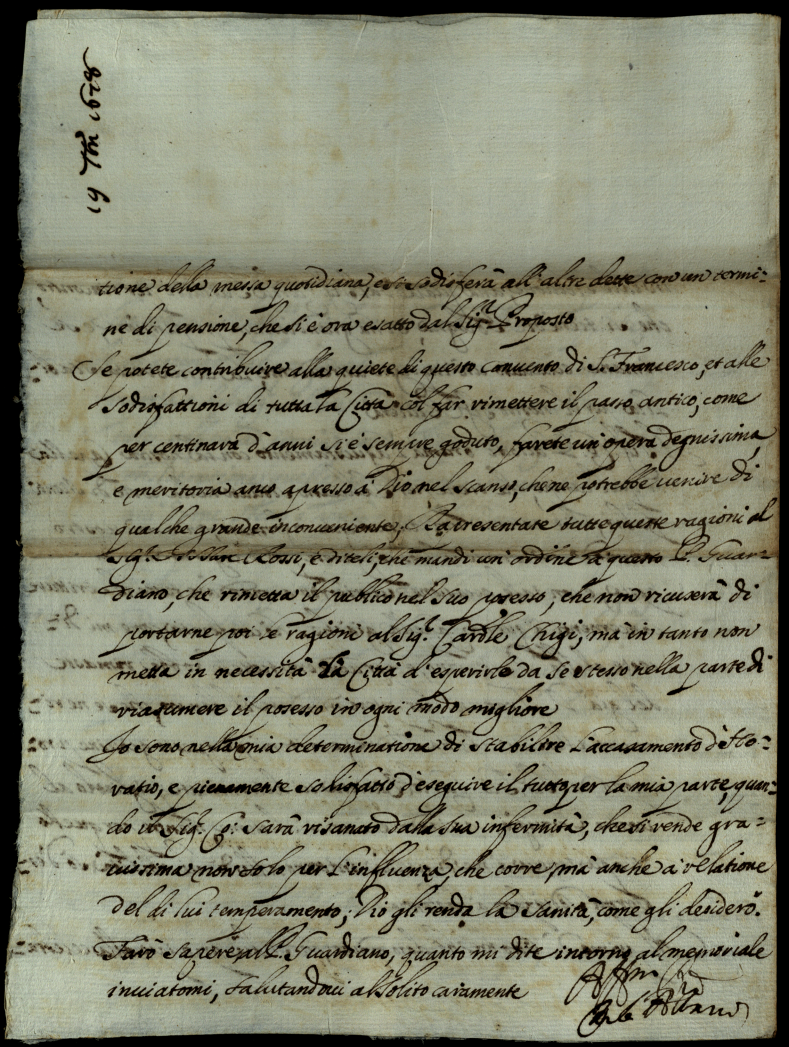 16 7bre 1678
tione della messa quotidiana, e si sodisferà all'altre dette con un termi=
ne di pensione, che si è ora esatto dal Sigr. Proposto
Se potete contribuire alla quiete di questo Convento di S. Francesco, et alle
sodisfattioni di tutta la Città col far rimettere il passo antico, come
per centinara d'anni si è sempre goduto, farete un'opera degnissima,
e meritoria anco apresso à Dio nel scanso, che ne potrebbe venire di
qualche grande inconveniente; Rapresentate tutte queste ragioni al
Sigr. Rossi, e diteli, che mandi un'ordine à questo P. Guar=
diano, che rimetta il publico nel suo posesso, che non ricuserà di
portarne poi le ragioni al Sigr. Cardle Chigi, mà in tanto non
metta in necessità la Città d'esperirle da se stesso nella parte di
riassumere il posesso in ogni modo migliore
Io sono nella mia determinatione di stabilire l'accasamento d'Ho=
ratio, e pienamente sodisfatto d'eseguire il tutto per la mia parte, quan=
do il Sigr. Co: sarà risanato dalla sua infermità, che si rende gra=
vissima non solo per l'influenza, che corre, mà anche à relatione
del di lui temperamento; Dio gli renda la sanità, come gli desidero.
Farò sapere all P. Guardiano, quanto mi dite intorno al memoriale
inviatomi, salutandovi al solito caramente